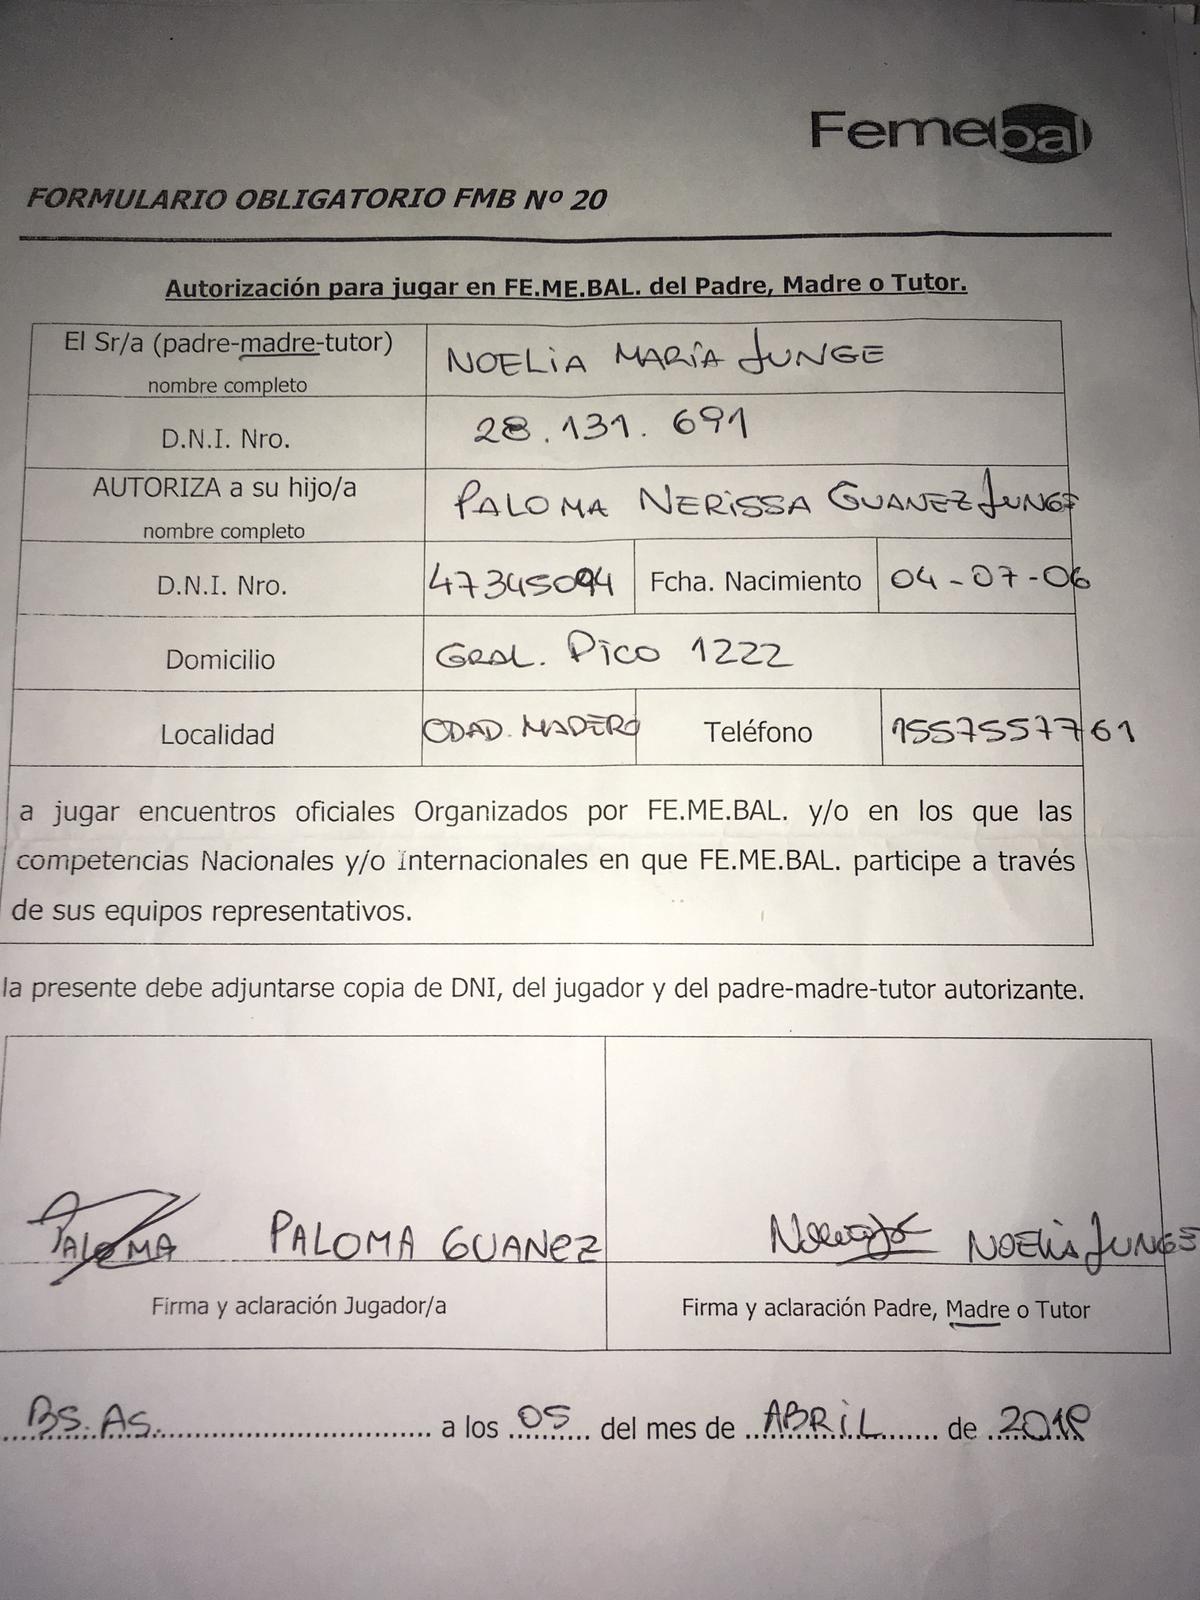 Femebal
FORMULARIO OBLIGATORIO FMB Nº 20
Autorización para jugar en FE.ME.BAL. del Padre, Madre o Tutor.
El Sr/a (padre-madre-tutor) NOELIA MARÍA JUNGE
nombre completo
D.N.I. Nro. 28.131.691
AUTORIZA a su hijo/a PALOMA NERISSA GUANEZ JUNGE
nombre completo
D.N.I. Nro. 47345094 Fcha. Nacimiento 04-07-06
Domicilio GRAL. PICO 1222
Localidad CDAD. MADERO Teléfono 15575577761
a jugar encuentros oficiales Organizados por FE.ME.BAL. y/o en los que las
competencias Nacionales y/o Internacionales en que FE.ME.BAL. participe a través
de sus equipos representativos.
la presente debe adjuntarse copia de DNI, del jugador y del padre-madre-tutor autorizante.
PALOMA PALOMA GUANEZ NOELIA JUNGE
Firma y aclaración Jugador/a Firma y aclaración Padre, Madre o Tutor
BS. AS. a los 05 del mes de ABRIL de